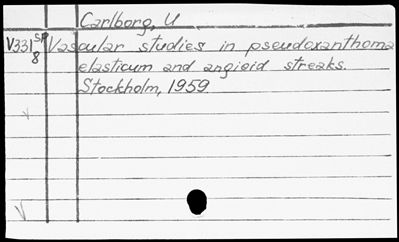 Carlborg, U
V331 SP Vascular studies in pseudoxanthoma
8 elasticum and angioid streaks.
Stockholm, 1959